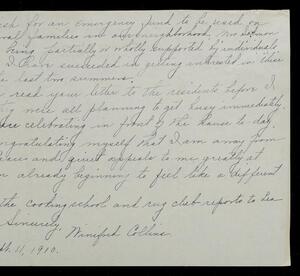 for an emergency fund to be used on
families in our neighborhood. Mrs
being partially or wholly supported by individuals
I have succeeded in getting interested in these
last two summers.
read your letter to the residents before I
were all planning to get busy immediately.
are celebrating in front of the house to-day.
congratulating myself that I am away from
and quiet appeals to me greatly at
already beginning to feel like a different
the cooking school and rug club reports to
Sincerely,
Winifred Collins
11, 1910.